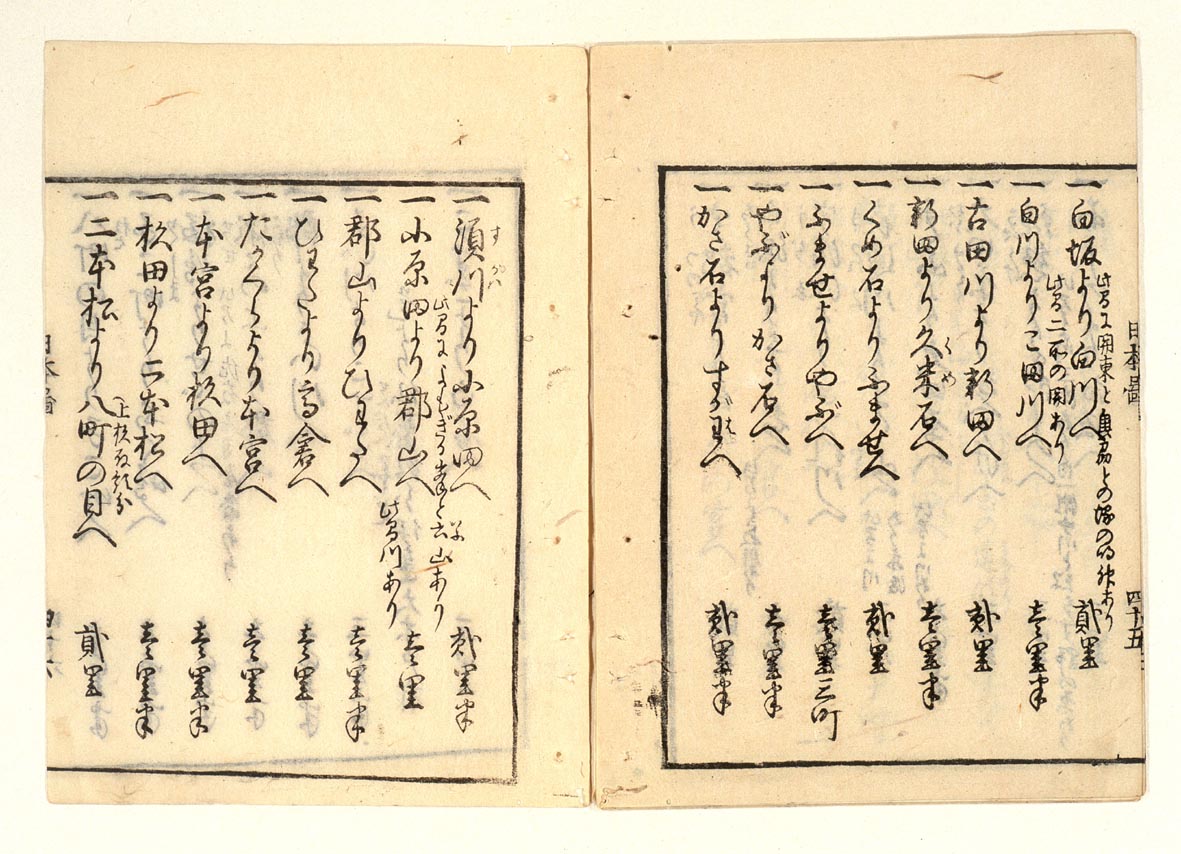 日本啚
四十五
一白坂より白川へ 貳里
此間に関東と奥州との堺の明神あり
一白川よりこ田川へ 壱里半
此間二所の関あり
一古田川より新田へ 弐里
一新田より久米石へ 壱里半
くめ
一くめ石よりふませへ 弐里
一ふませよりやぶへ 壱里三町
一やぶよりかさ石へ 壱里半
一かさ石よりすが川へ 弐里半
一須川より小原田へ 弐里半
すかハ
一小原田より郡山へ 壱里
此間によもぎる嶽と云山あり
一郡山よりひわたへ 壱里半
此間川あり
一ひわたより高倉へ 壱里
一たかくらより本宮へ 壱里
一本宮より杉田へ 壱里半
一杉田より二本松へ 壱里半
一二本松より八町の目へ 貳里
上杉殿領分
日本啚
四十六